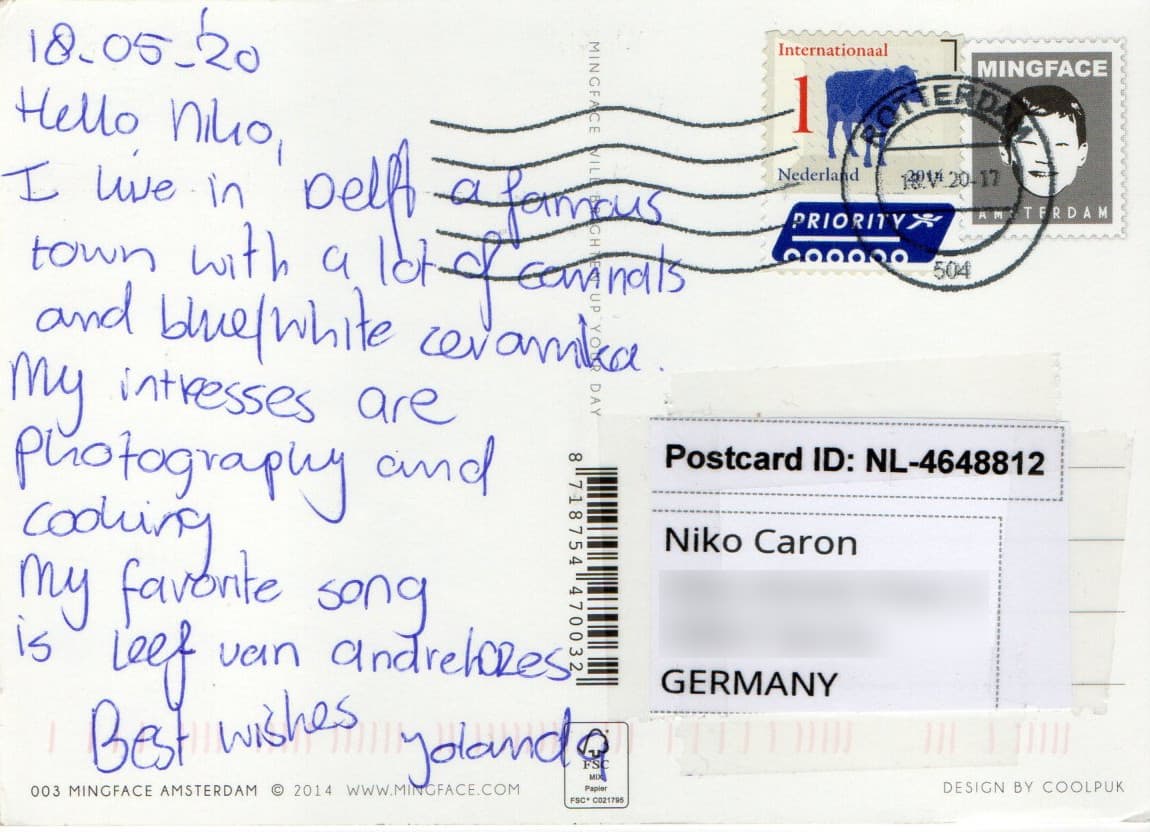 18-05-'20
Hello Niko,
I live in Delft a famous
town with a lot of cannals
and blue/white ceramika.
My intresses are
Photography and
cooking
My favorite song
is Leef van andrehazes
Best wishes yolanda
003 MINGFACE AMSTERDAM © 2014 WWW.MINGFACE.COM
MINGFACE WILL BRIGHTEN UP YOUR DAY
8 718754 470032
FSC
MIX
Papier
FSC® C021795
Internationaal
1
Nederland 2014
PRIORITY
MINGFACE
AMSTERDAM
ROTTERDAM
18.V.20-17
504
Postcard ID: NL-4648812
Niko Caron
GERMANY
DESIGN BY COOLPUK